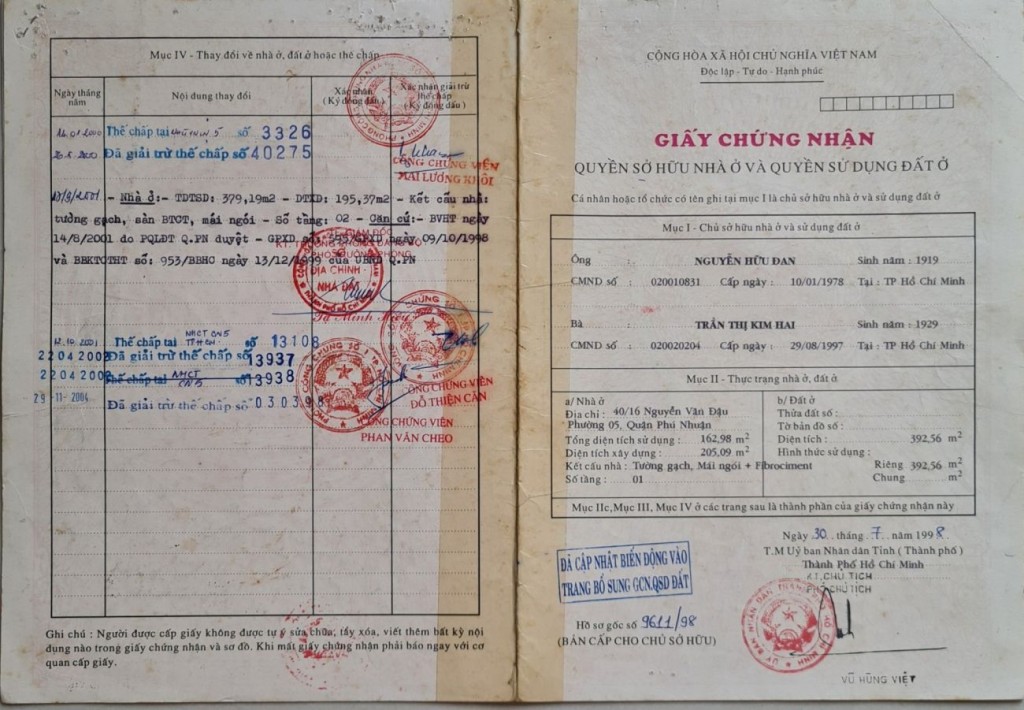 Mục IV - Thay đổi về nhà ở, đất ở hoặc thế chấp
Ngày tháng năm
Nội dung thay đổi
Xác nhận (Ký đóng dấu)
Xác nhận giải trừ thế chấp (Ký đóng dấu)
Thế chấp tại số 3326
Đã giải trừ thế chấp số 40275
CÔNG CHỨNG VIÊN
MAI LƯƠNG KHÔI
- Nhà ở:- TDTSD: 379,19m2 - DTXD: 195,37m2 - Kết cấu nhà:
tường gạch, sàn BTCT, mái ngói - Số tầng: 02 - Căn cứ:- BVHT ngày
14/8/2001 do PQLĐT Q.PN duyệt - GPXD số: /GPXD ngày 09/10/1998
và BBKTCTHT số: 953/BBHC ngày 13/12/1999 của UBND Q.PN
ĐỊA CHÍNH -
NHÀ ĐẤT
Tạ Minh
12.10.2001 Thế chấp tại NHCT CN5 số 13108
22 04 2002 Đã giải trừ thế chấp số 13937
22 04 2002 Thế chấp tại NHCT CN5 số 13938
29-11-2004 Đã giải trừ thế chấp số
CÔNG CHỨNG VIÊN
ĐỖ THIÊN CĂN
CÔNG CHỨNG VIÊN
PHAN VĂN CHEO
Ghi chú : Người được cấp giấy không được tự ý sửa chữa, tẩy xóa, viết thêm bất kỳ nội
dung nào trong giấy chứng nhận và sơ đồ. Khi mất giấy chứng nhận phải báo ngay với cơ
quan cấp giấy.
CỘNG HÒA XÃ HỘI CHỦ NGHĨA VIỆT NAM
Độc lập - Tự do - Hạnh phúc
GIẤY CHỨNG NHẬN
QUYỀN SỞ HỮU NHÀ Ở VÀ QUYỀN SỬ DỤNG ĐẤT Ở
Cá nhân hoặc tổ chức có tên ghi tại mục I là chủ sở hữu nhà ở và sử dụng đất ở
Mục I - Chủ sở hữu nhà ở và sử dụng đất ở
Ông : NGUYỄN HỮU ĐAN Sinh năm : 1919
CMND số : 020010831 Cấp ngày : 10/01/1978 Tại : TP Hồ Chí Minh
Bà : TRẦN THỊ KIM HAI Sinh năm : 1929
CMND số : 020020204 Cấp ngày : 29/08/1997 Tại : TP Hồ Chí Minh
Mục II - Thực trạng nhà ở, đất ở
a/ Nhà ở
Địa chỉ : 40/16 Nguyễn Văn Đậu
Phường 05, Quận Phú Nhuận
Tổng diện tích sử dụng : 162,98 m2
Diện tích xây dựng : 205,09 m2
Kết cấu nhà : Tường gạch, Mái ngói + Fibrociment
Số tầng : 01
b/ Đất ở
Thửa đất số :
Tờ bản đồ số :
Diện tích : 392,56 m2
Hình thức sử dụng :
Riêng 392,56 m2
Chung m2
Mục IIc,Mục III, Mục IV ở các trang sau là thành phần của giấy chứng nhận này
Ngày 30 tháng 7 năm 1998.
T.M Uỷ ban Nhân dân Tỉnh ( Thành phố )
Thành Phố Hồ Chí Minh
KT.CHỦ TỊCH
PHÓ CHỦ TỊCH
ĐÃ CẬP NHẬT BIẾN ĐỘNG VÀO
TRANG BỔ SUNG GCN.QSD ĐẤT
Hồ sơ gốc số 9611/98
(BẢN CẤP CHO CHỦ SỞ HỮU)
VŨ HÙNG VIỆT